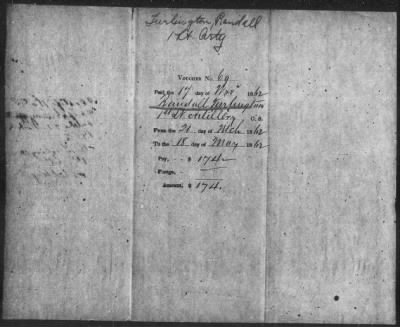 Turlington, Randall
1 Lt Arty
VOUCHER No. 69
Paid the 17 day of Nov 1862
Randall Turlington
1st Lt Artillery C. S.
From the 21 day of Mch 1862
To the 18 day of May 1862
Pay, - $ 174
Forage,
Amount, $ 174.